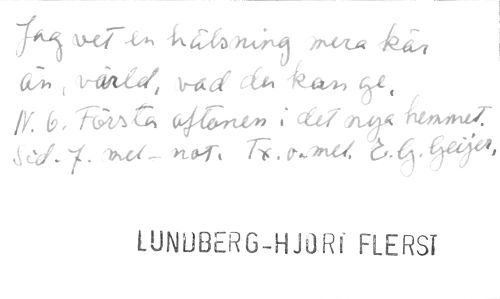 Jag vet en hälsning mera kär
än, värld, vad du kan ge,
N. 6. Första aftonen i det nya hemmet.
Sid. 7. mel-not. Tx. o. mel. E. G. Geijer.
LUNDBERG-HJORT FLERST